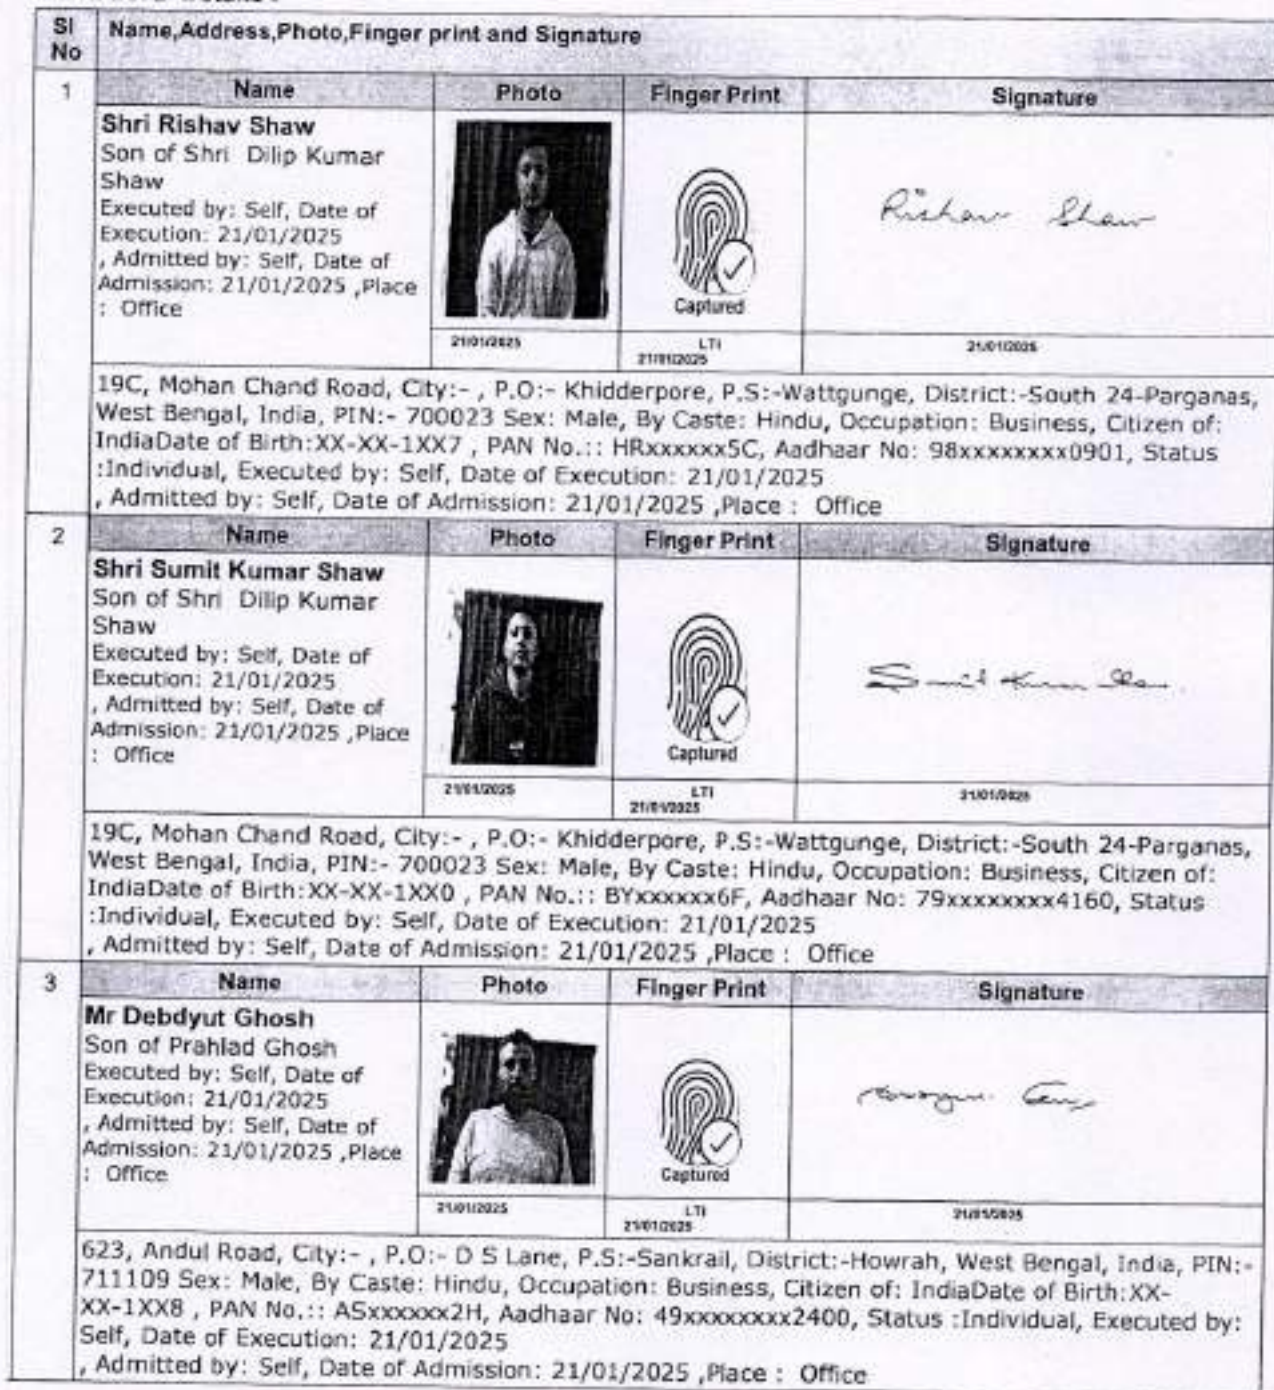 Sl No
Name,Address,Photo,Finger print and Signature
1
Name Photo Finger Print Signature
Shri Rishav Shaw
Son of Shri Dilip Kumar
Shaw
Executed by: Self, Date of
Execution: 21/01/2025
, Admitted by: Self, Date of
Admission: 21/01/2025 ,Place
: Office
Captured
Rishav Shaw
21/01/2025
LTI
21/01/2025
21/01/2025
19C, Mohan Chand Road, City:- , P.O:- Khidderpore, P.S:-Wattgunge, District:-South 24-Parganas,
West Bengal, India, PIN:- 700023 Sex: Male, By Caste: Hindu, Occupation: Business, Citizen of:
IndiaDate of Birth:XX-XX-1XX7 , PAN No.:: HRxxxxxx5C, Aadhaar No: 98xxxxxxxx0901, Status
:Individual, Executed by: Self, Date of Execution: 21/01/2025
, Admitted by: Self, Date of Admission: 21/01/2025 ,Place : Office
2
Name Photo Finger Print Signature
Shri Sumit Kumar Shaw
Son of Shri Dilip Kumar
Shaw
Executed by: Self, Date of
Execution: 21/01/2025
, Admitted by: Self, Date of
Admission: 21/01/2025 ,Place
: Office
Captured
Sumit Kumar Shaw
21/01/2025
LTI
21/01/2025
21/01/2025
19C, Mohan Chand Road, City:- , P.O:- Khidderpore, P.S:-Wattgunge, District:-South 24-Parganas,
West Bengal, India, PIN:- 700023 Sex: Male, By Caste: Hindu, Occupation: Business, Citizen of:
IndiaDate of Birth:XX-XX-1XX0 , PAN No.:: BYxxxxxx6F, Aadhaar No: 79xxxxxxxx4160, Status
:Individual, Executed by: Self, Date of Execution: 21/01/2025
, Admitted by: Self, Date of Admission: 21/01/2025 ,Place : Office
3
Name Photo Finger Print Signature
Mr Debdyut Ghosh
Son of Prahlad Ghosh
Executed by: Self, Date of
Execution: 21/01/2025
, Admitted by: Self, Date of
Admission: 21/01/2025 ,Place
: Office
Captured
21/01/2025
LTI
21/01/2025
21/01/2025
623, Andul Road, City:- , P.O:- D S Lane, P.S:-Sankrail, District:-Howrah, West Bengal, India, PIN:-
711109 Sex: Male, By Caste: Hindu, Occupation: Business, Citizen of: IndiaDate of Birth:XX-
XX-1XX8 , PAN No.:: ASxxxxxx2H, Aadhaar No: 49xxxxxxxx2400, Status :Individual, Executed by:
Self, Date of Execution: 21/01/2025
, Admitted by: Self, Date of Admission: 21/01/2025 ,Place : Office